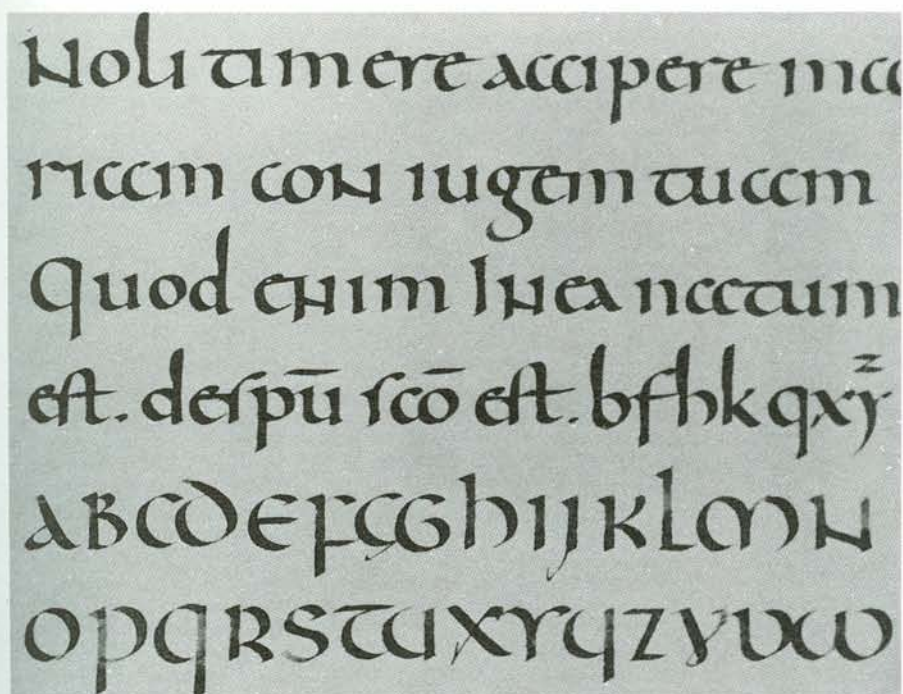 Noli timere accipere ma
riam con iugem tuam
Quod enim in ea natum
est. de spū scō est. b f h k q x y z
A B C D E F Ç G H I J K L M N
O P Q R S T U X Y Y Z Y V W